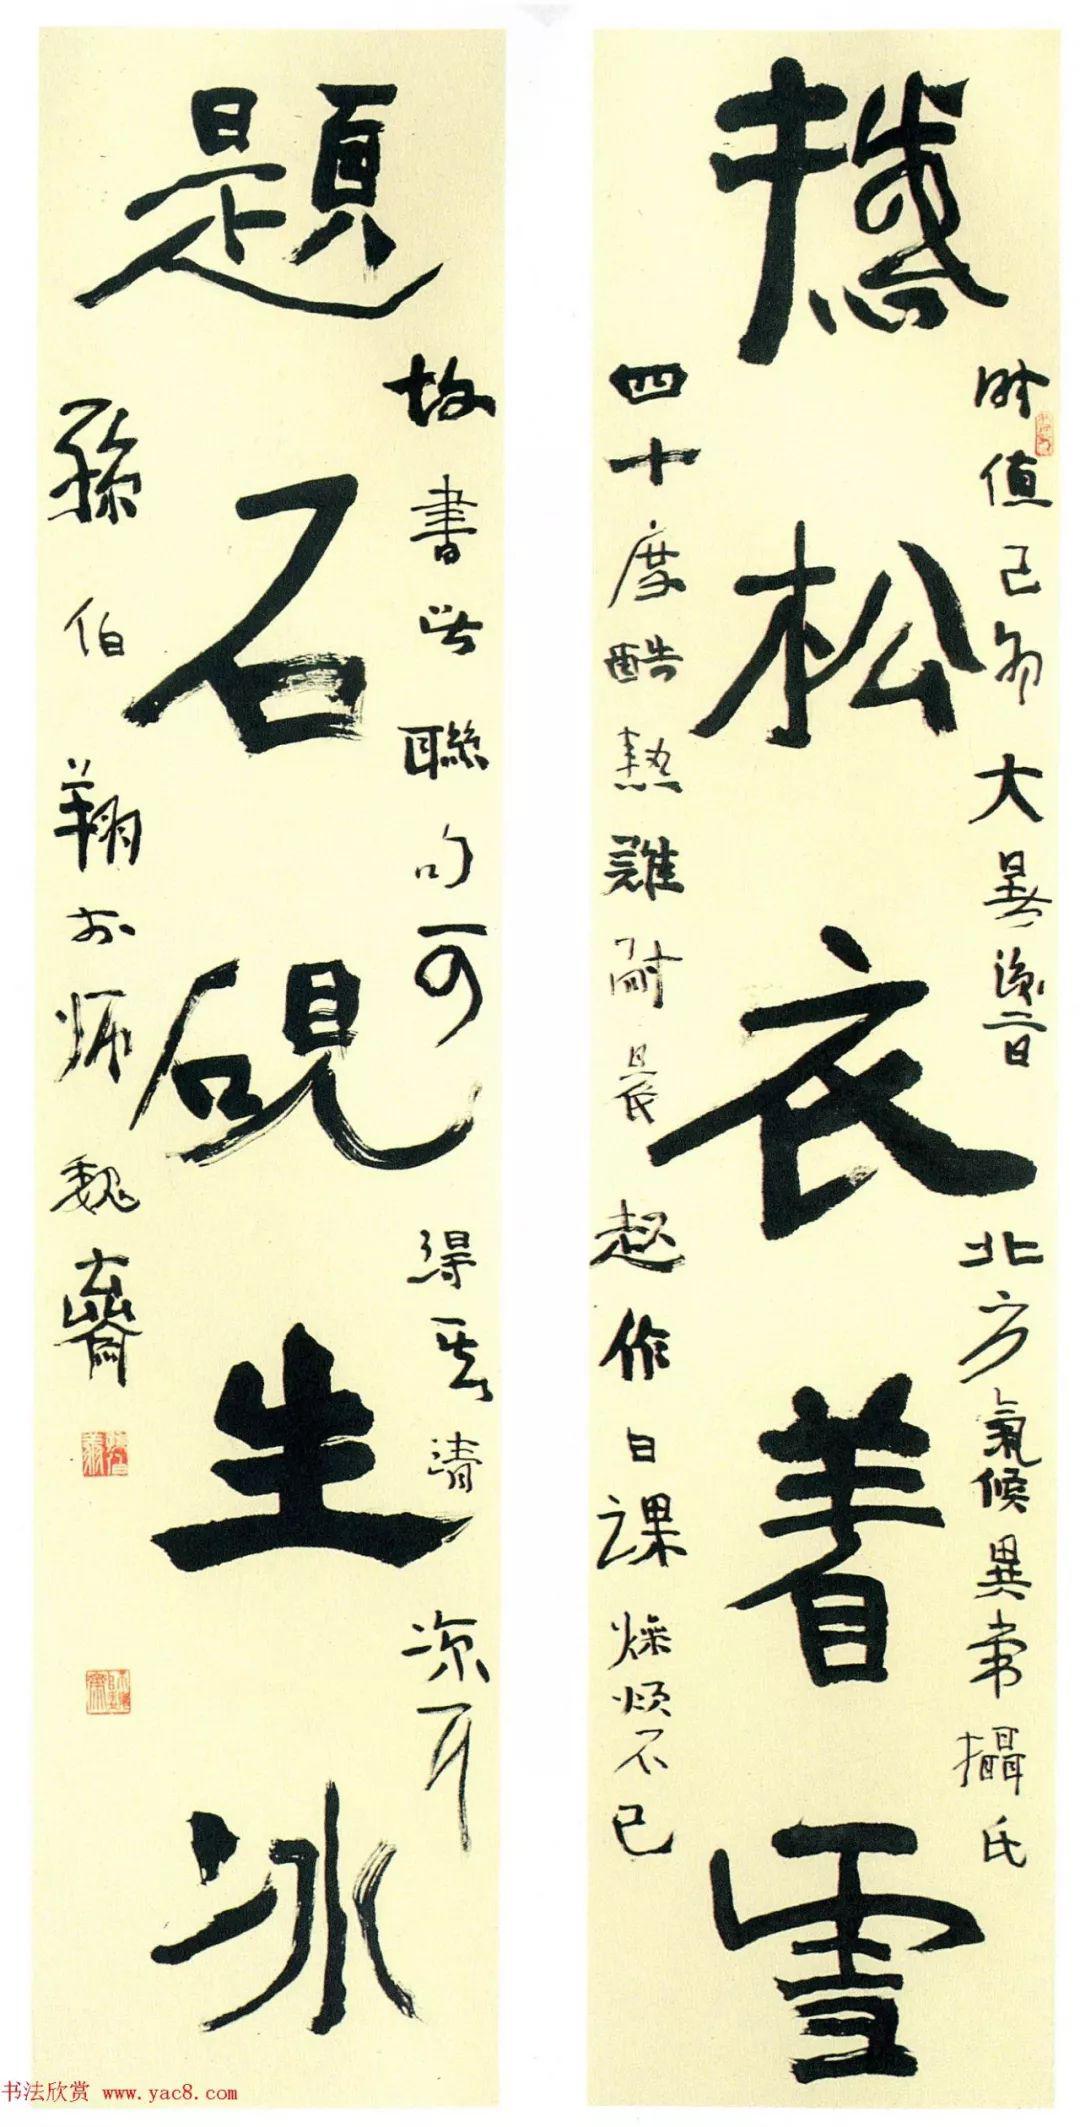 撼松衣着雪
時值己卯大暑後二日北方氣候異常攝氏
四十度酷熱難耐晨起作日課燥煩不已
題石硯生冰
故書此聯句可得其清涼耳
孫伯翔於師魏齋
书法欣赏 www.yac8.com